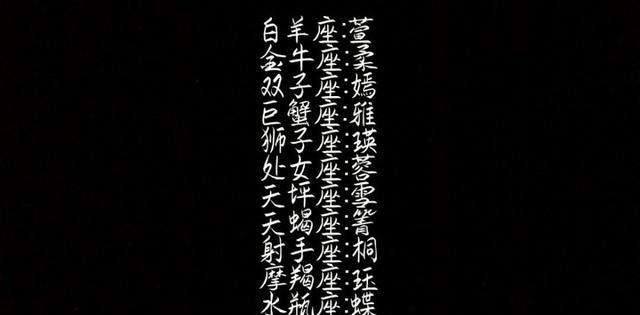 白羊座:萱
金牛座:柔
双子座:嫣
巨蟹座:雅
狮子座:瑛
处女座:蓉
天坪座:雪
天蝎座:箐
射手座:桐
摩羯座:珏
水瓶座:蝶